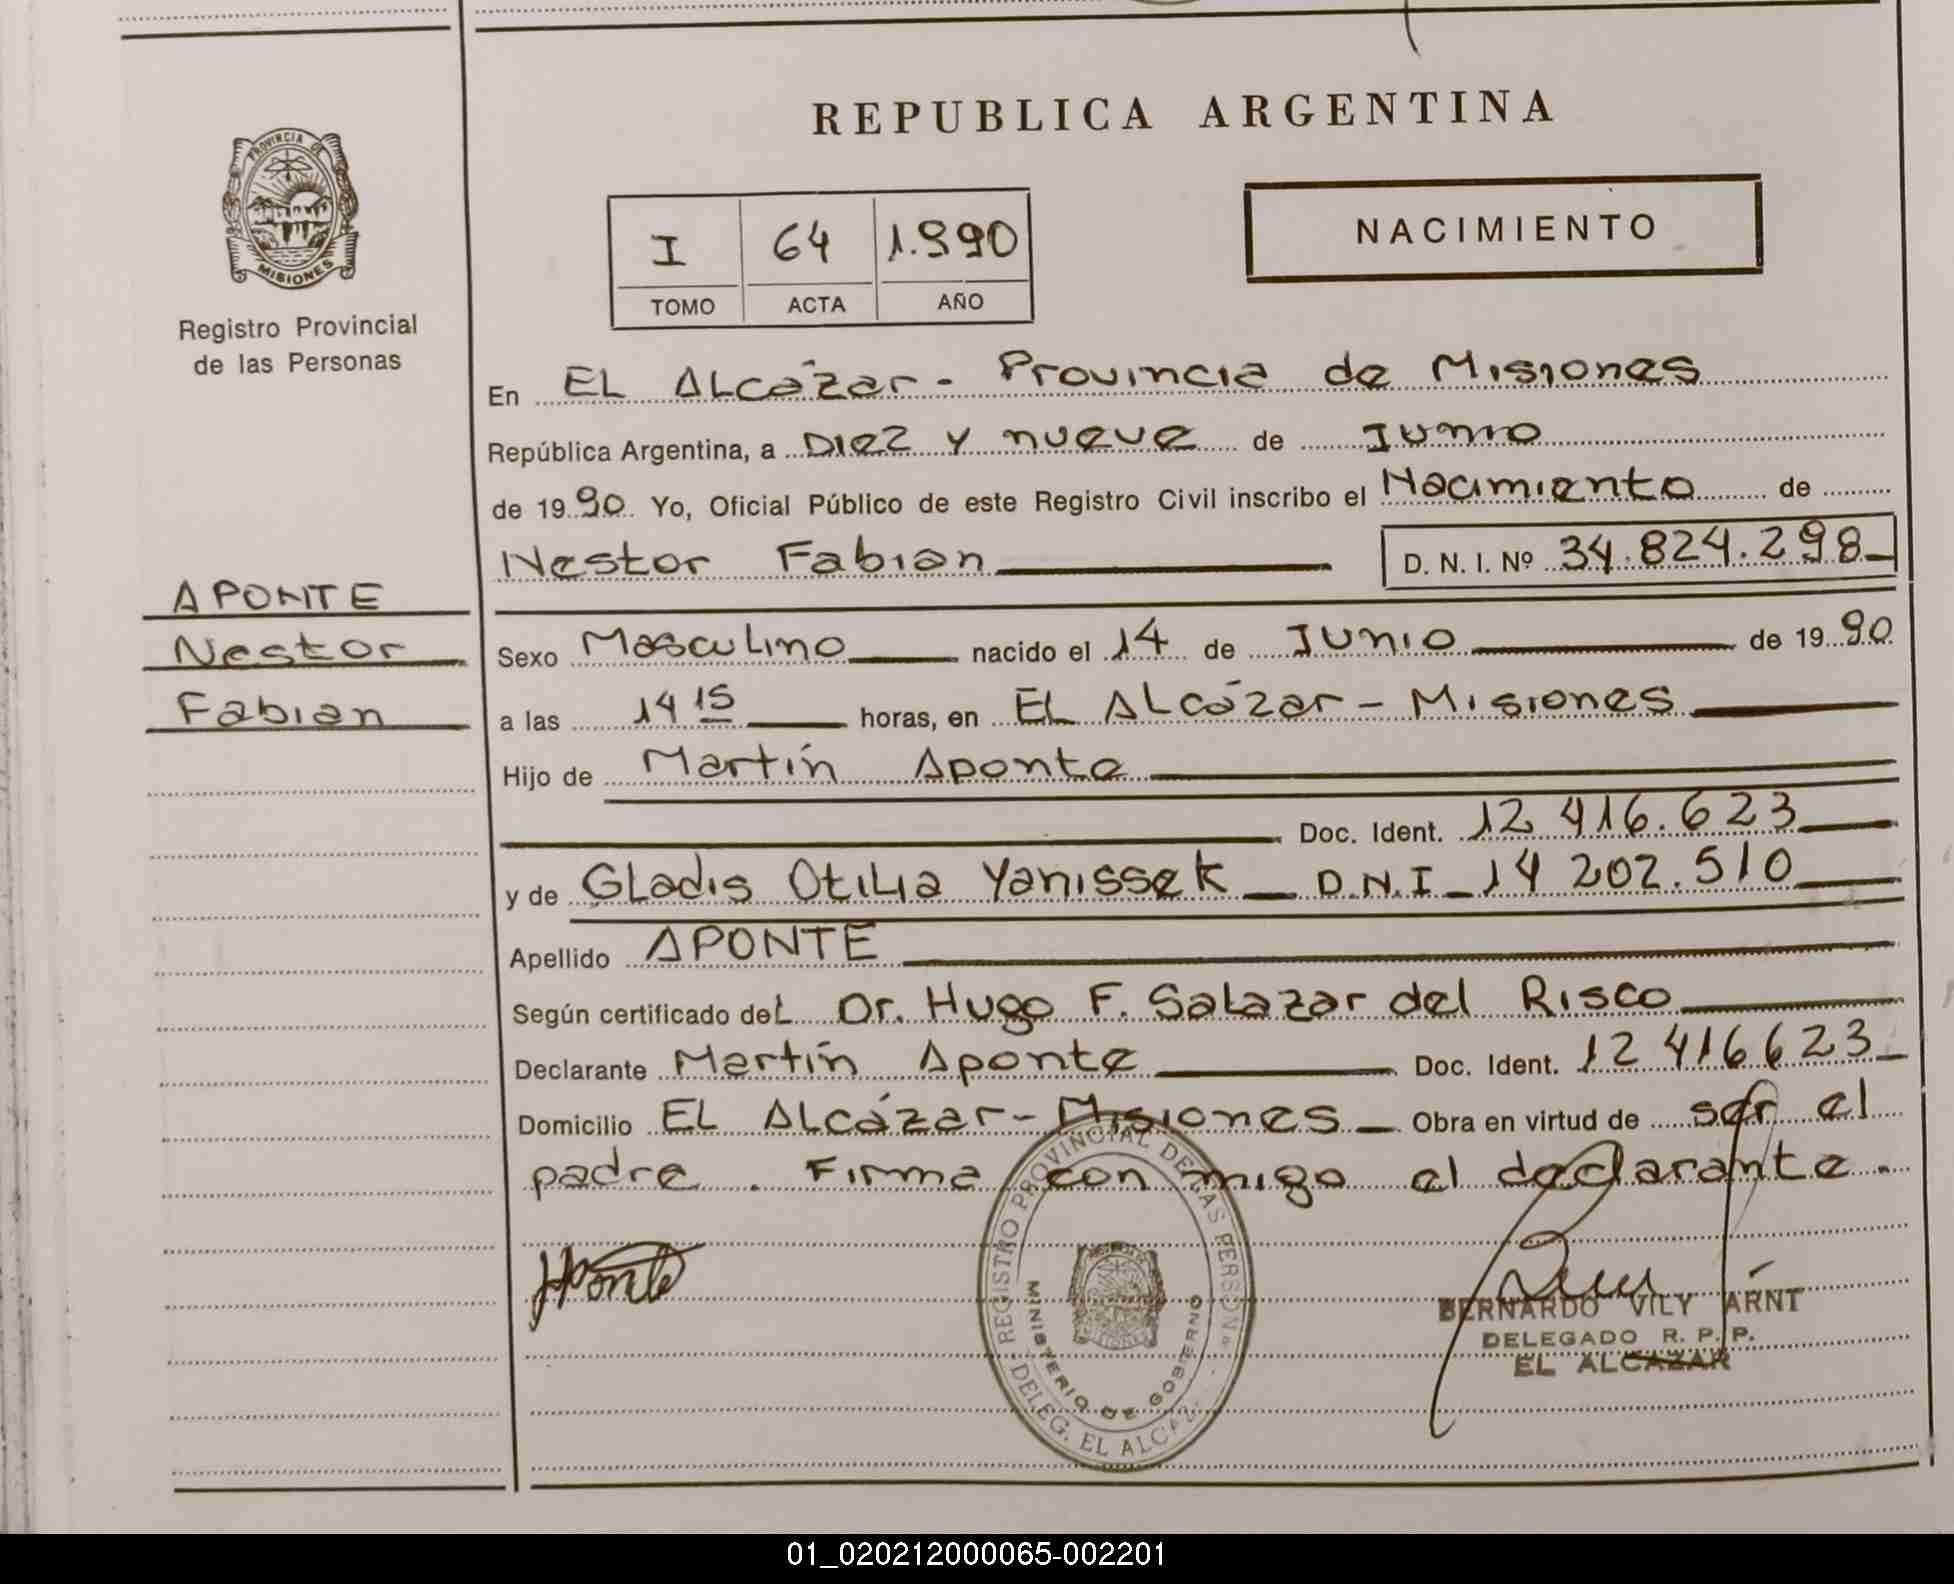 REPUBLICA ARGENTINA
PROVINCIA DE
MISIONES
Registro Provincial
de las Personas
I 64 1.990
TOMO ACTA AÑO
NACIMIENTO
En EL ALcázar - Provincia de Misiones
República Argentina, a Diez y nueve de Junio
de 1990 Yo, Oficial Público de este Registro Civil inscribo el Nacimiento de
Nestor Fabian D. N. I. Nº 34.824.298
APONTE
Nestor
Fabian
Sexo Masculino nacido el 14 de Junio de 1990
a las 14 15 horas, en EL ALcázar - Misiones
Hijo de Martín Aponte
Doc. Ident. 12 416.623
y de Gladis Otilia Yanissek D.N.I 14 202.510
Apellido APONTE
Según certificado deL Dr. Hugo F. Salazar del Risco
Declarante Martín Aponte Doc. Ident. 12 416623
Domicilio EL ALcázar - Misiones Obra en virtud de ser el
padre. Firma con migo el declarante.
Aponte
REGISTRO PROVINCIAL DE LAS PERSON.
MINISTERIO DE GOBIERNO
DELEG. EL ALCAZ.
BERNARDO VILY ARNT
DELEGADO R. P. P.
EL ALCAZAR
01_020212000065-002201